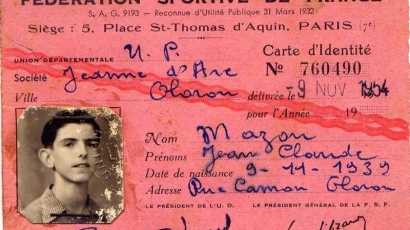 FEDERATION SPORTIVE DE FRANCE
S. A. G. 9193 — Reconnue d'Utilité Publique 31 Mars 1932
Siège : 5, Place St-Thomas d'Aquin, PARIS (7e)
UNION DÉPARTEMENTALE U. P. Carte d'Identité
Société Jeanne d'Arc N° 760490
Ville Oloron délivrée le -9 NOV 1954
pour l'Année 19
Nom Mazou
Prénoms Jean Claude
Date de naissance 9-11-1939
Adresse Rue Camou Oloron
LE PRÉSIDENT DE L'U. D. LE PRÉSIDENT GÉNÉRAL DE LA F. S. F.